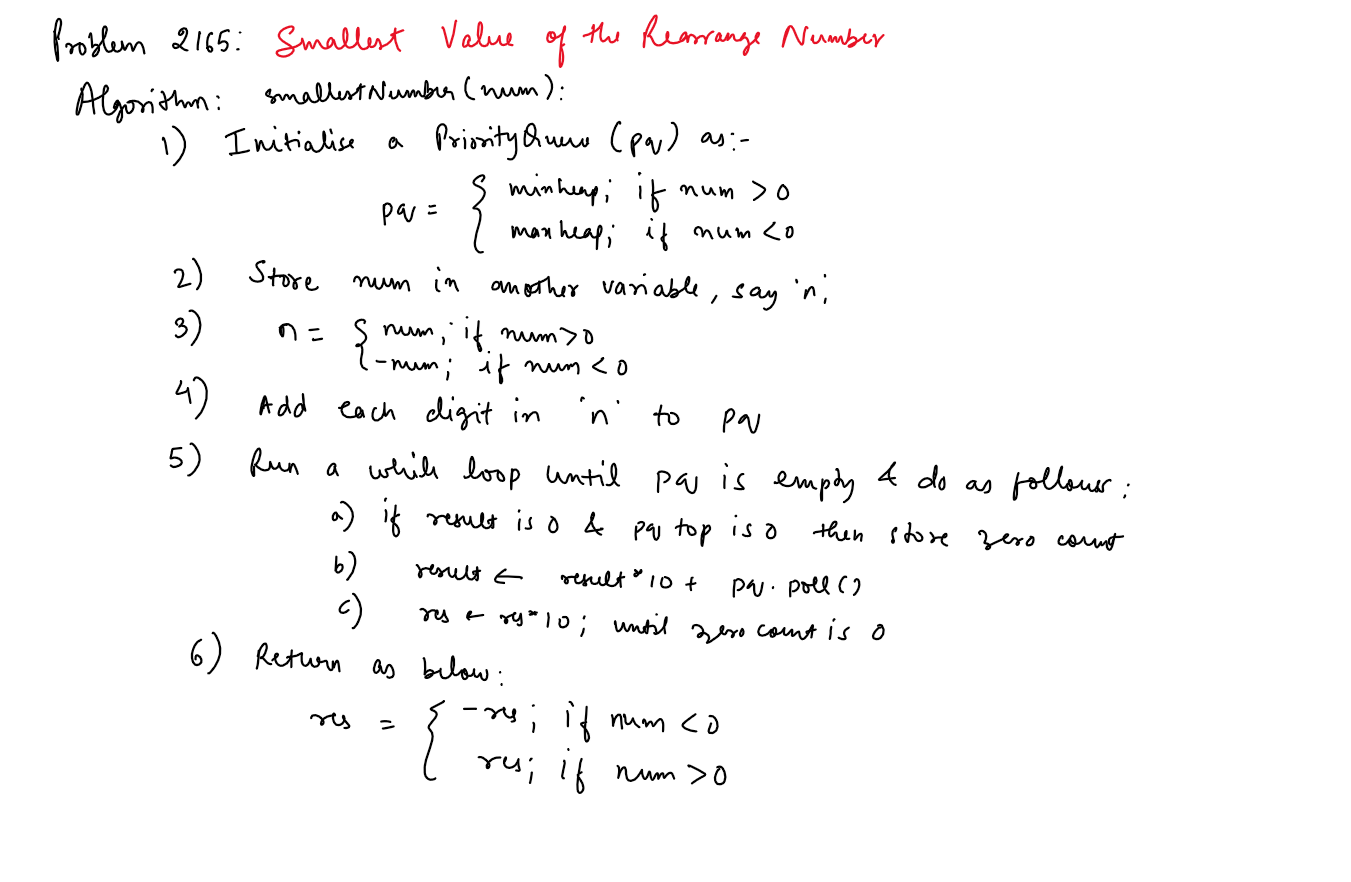 Problem 2165: Smallest Value of the Rearrange Number
Algorithm: smallestNumber(num):
1) Initialise a PriorityQueue (pq) as:-
pq = { minheap; if num > 0
maxheap; if num < 0
2) Store num in another variable, say 'n;
3) n = { num; if num > 0
-num; if num < 0
4) Add each digit in 'n' to pq
5) Run a while loop until pq is empty & do as follows:
a) if result is 0 & pq top is 0 then store zero count
b) result ← result * 10 + pq. poll()
c) res ← res * 10; until zero count is 0
6) Return as below:
res = { -res; if num < 0
res; if num > 0